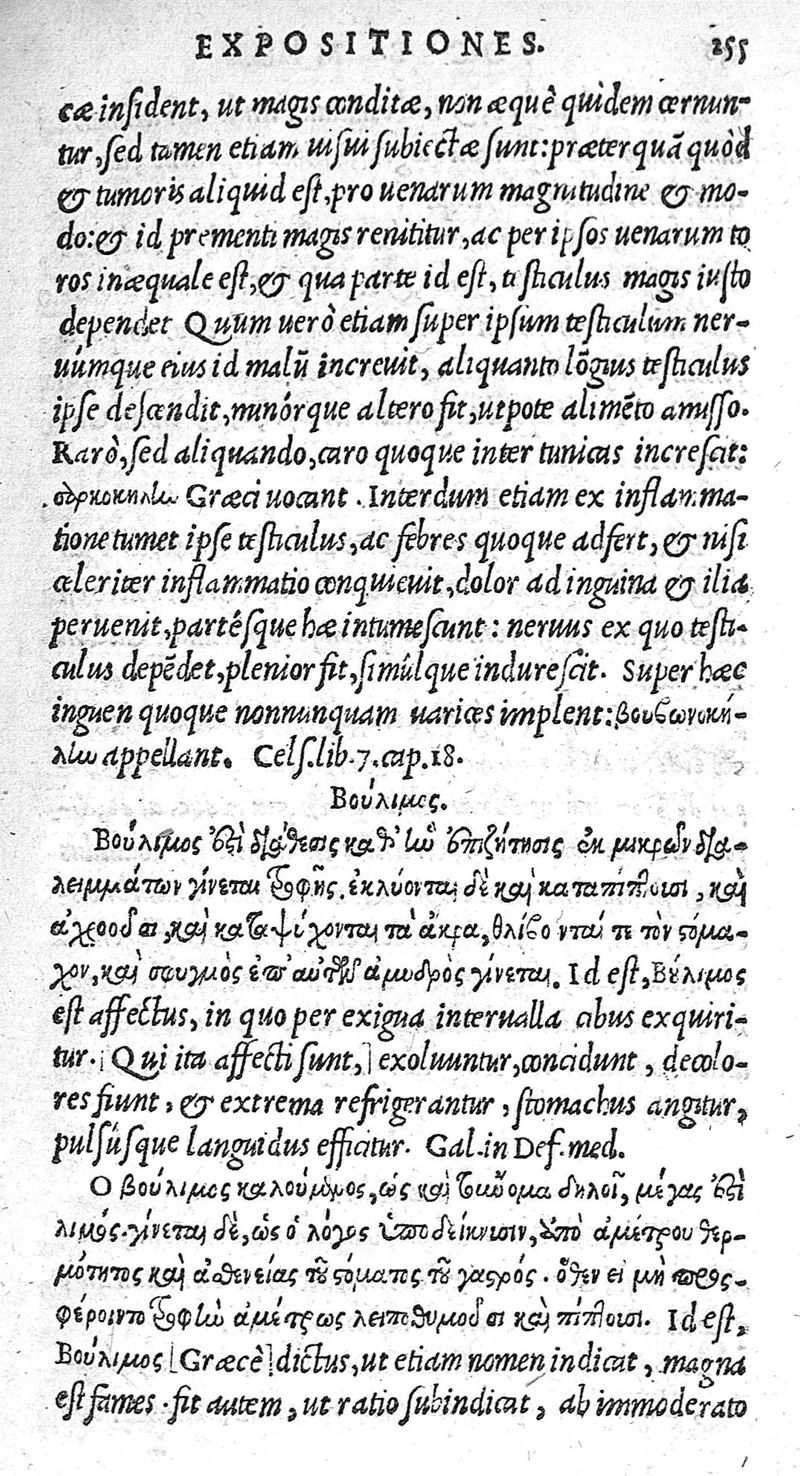 EXPOSITIONES. 255
cæ insident, ut magis conditæ, non æquè quidem cernun-
tur, sed tamen etiam uisui subiectæ sunt: præterquã quòd
& tumoris aliquid est, pro uenarum magnitudine & mo-
do: & id prementi magis renititur, ac per ipsos uenarum to
ros inæquale est, & qua parte id est, testiculus magis iusto
dependet Quum uerò etiam super ipsum testiculum ner-
uúmque eius id malũ increuit, aliquanto lõgius testiculus
ipse descendit, minórque altero fit, utpote alimẽto amisso.
Rarò, sed aliquando, caro quoque inter tunicas increscit:
σαρκοκήλην Græci uocant. Interdum etiam ex inflamma-
tione tumet ipse testiculus, ac febres quoque adfert, & nisi
celeriter inflammatio conquieuit, dolor ad inguina & ilia
peruenit, partésque hæ intumescunt: neruus ex quo testi-
culus depẽdet, plenior fit, simúlque indurescit. Super hæc
inguen quoque nonnunquam uarices implent: βουβωνοκή-
λην appellant. Cels. lib. 7. cap. 18.
Βούλιμος.
Βούλιμος ἐστὶ διάθεσις καθ᾽ ἣν ἐπιζήτησις ἐκ μικρῶν δια-
λειμμάτων γίνεται τροφῆς. ἐκλύονται δὲ καὶ καταπίπτουσι, καὶ
ἀχροοῦσι, καὶ καταψύχονται τὰ ἄκρα, θλίβονταί τε τὸν στόμα-
χον, καὶ σφυγμὸς ἐπ᾽ αὐτῶν ἀμυδρὸς γίνεται. Id est, Βούλιμος
est affectus, in quo per exigua interualla cibus exquiri-
tur. [Qui ita affecti sunt,] exoluuntur, concidunt, decolo-
res fiunt, & extrema refrigerantur, stomachus angitur,
pulsúsque languidus efficitur. Gal. in Def. med.
Ο βούλιμος καλούμενος, ὡς καὶ τοὔνομα δηλοῖ, μέγας ἐστὶ
λιμός. γίνεται δὲ, ὡς ὁ λόγος ὑποδείκνυσιν, ὑπὸ ἀμέτρου θερ-
μότητος καὶ ἀσθενείας τοῦ στόματος τοῦ γαστρός. ὅθεν εἰ μὴ προσ-
φέροιντο τροφὴν ἀμέτρως λειποθυμοῦσι καὶ πίπτουσι. Id est,
Βούλιμος [Græcè] dictus, ut etiam nomen indicat, magna
est fames. fit autem, ut ratio subindicat, ab immoderato